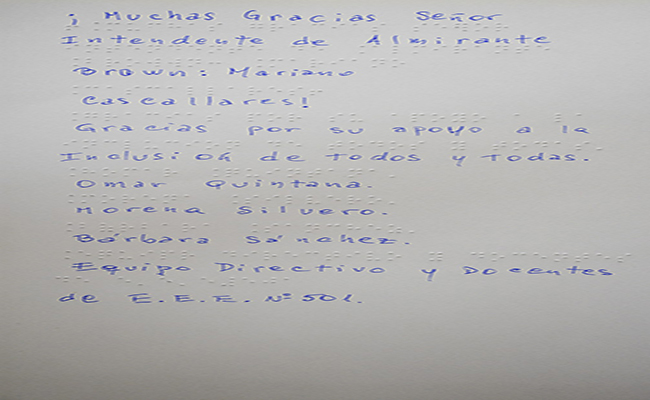 ¡ Muchas Gracias Señor
Intendente de Almirante
Brown: Mariano
Cascallares!
Gracias por su apoyo a la
Inclusión de Todos y Todas.
Omar Quintana.
Morena Silvero.
Bárbara Sánchez.
Equipo Directivo y Docentes
de E.E.E. Nº 501.